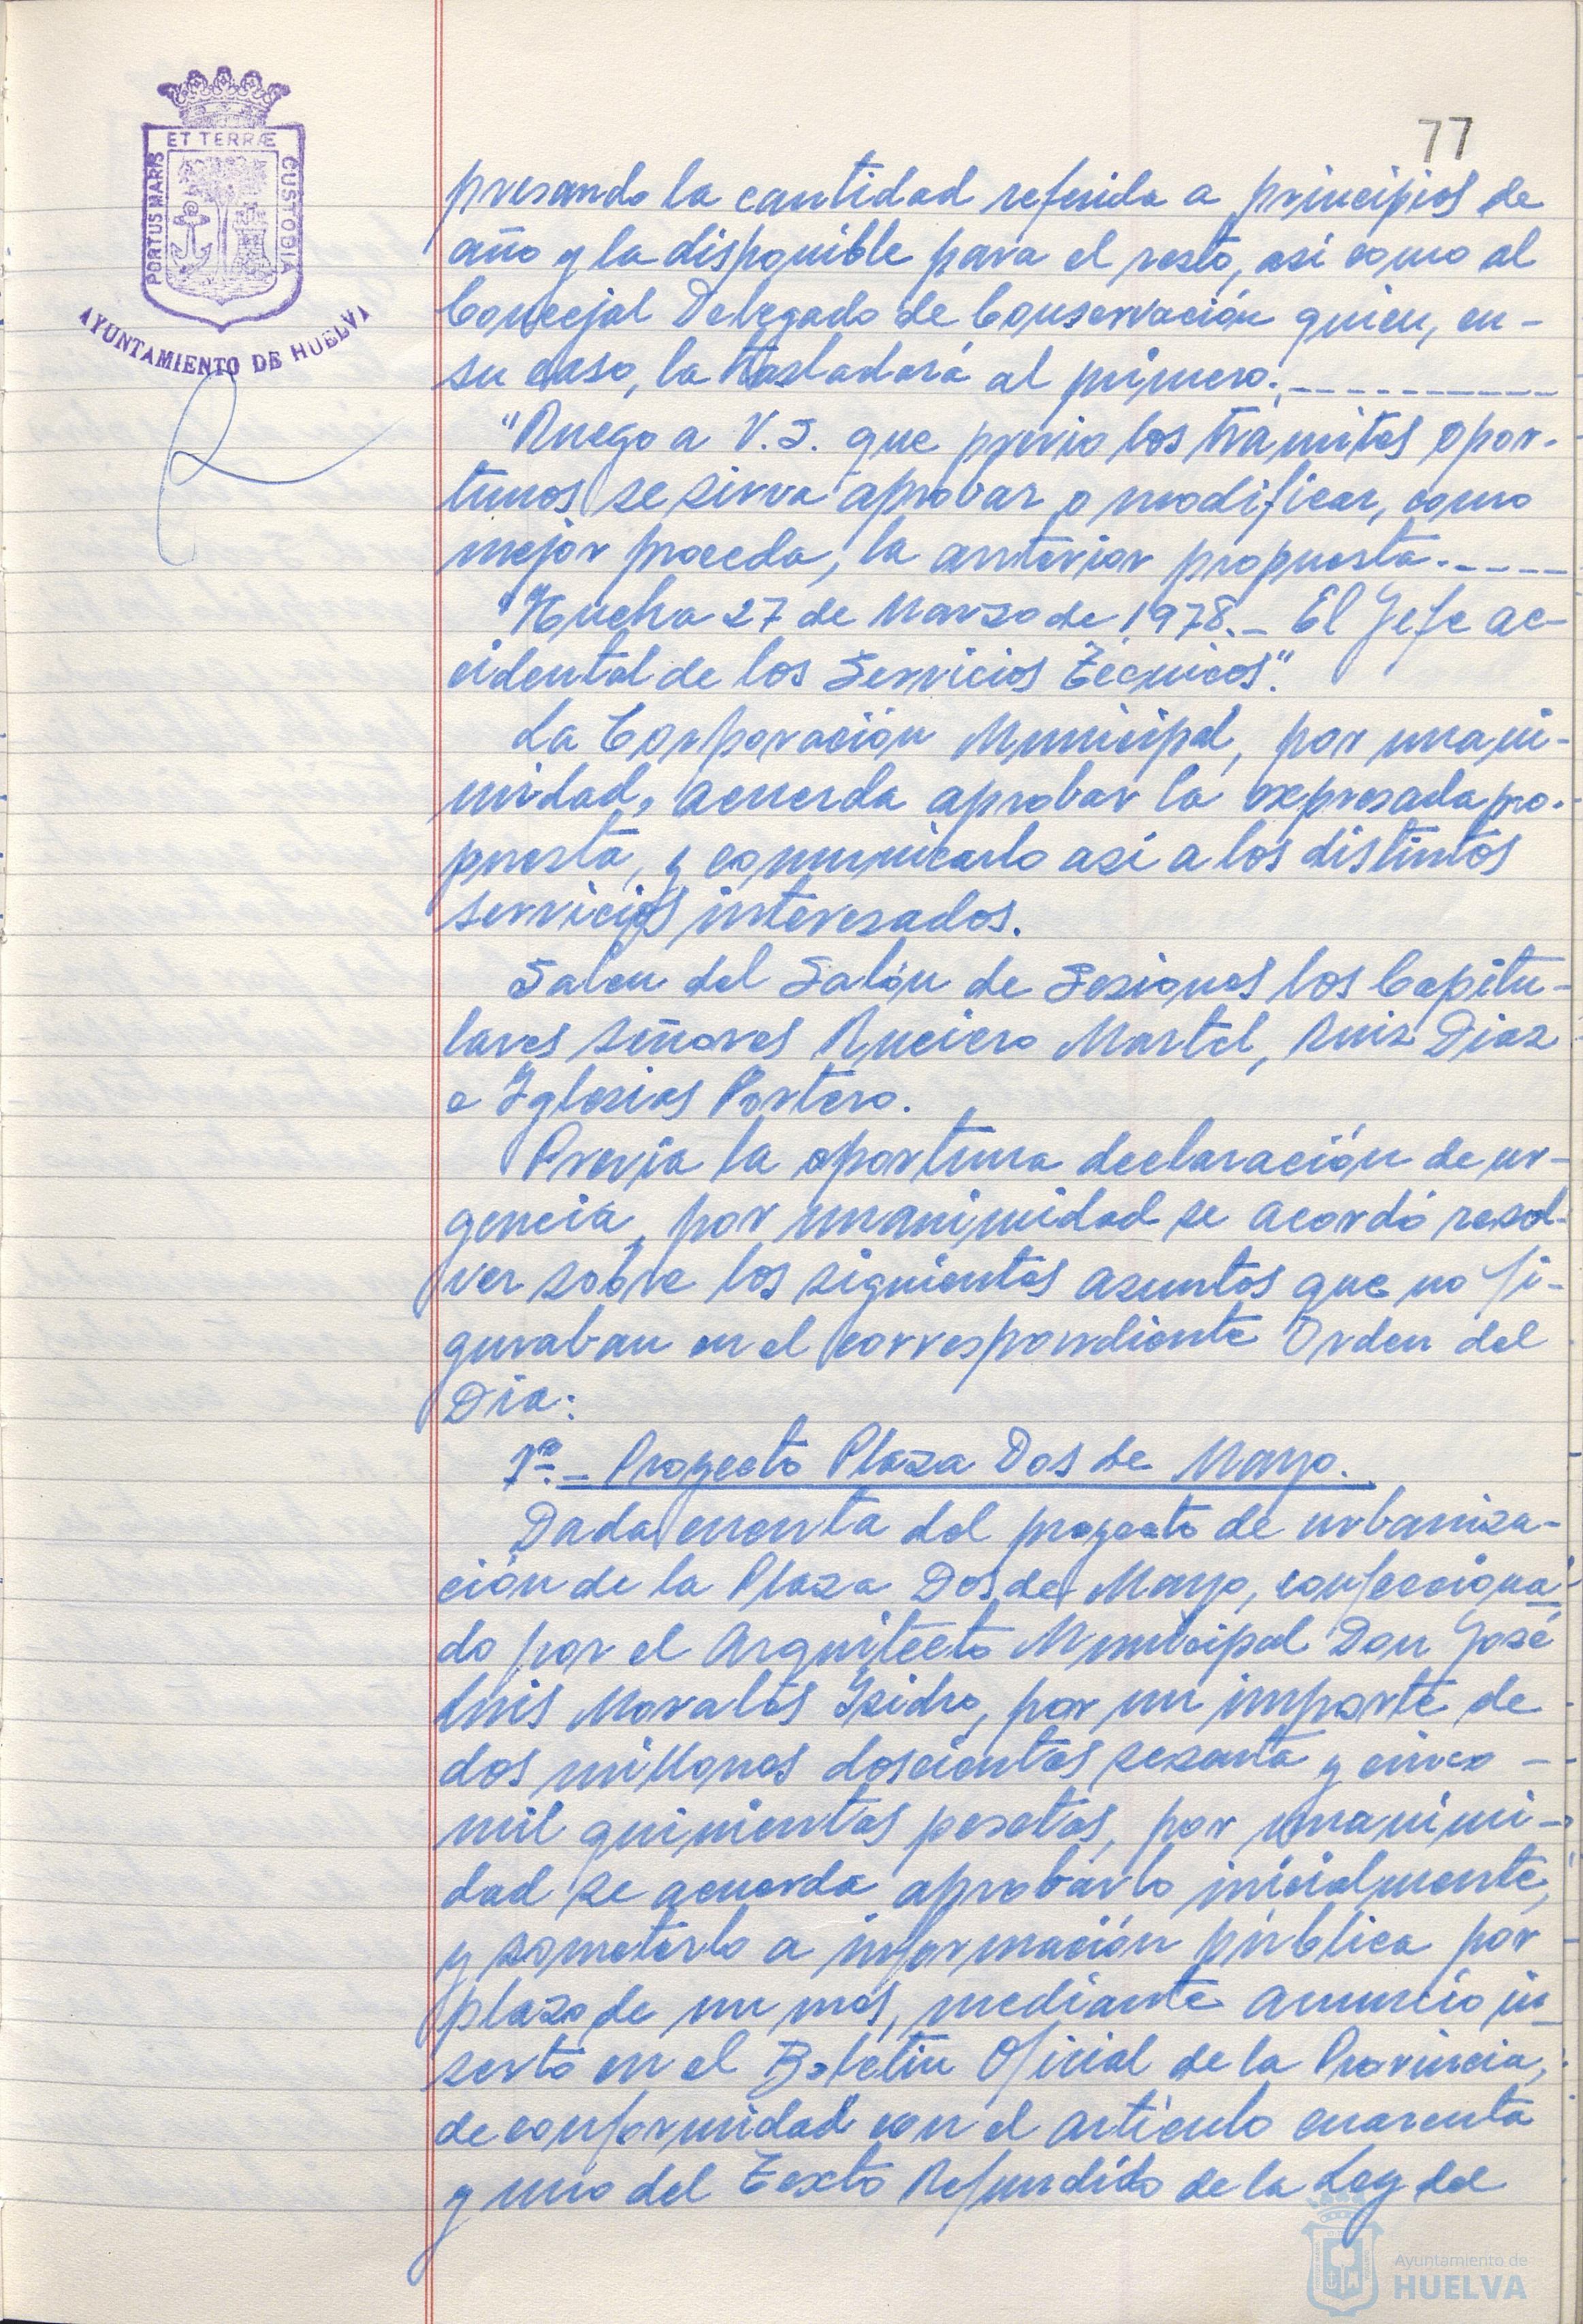 77
ET TERRÆ
PORTUS MARIS
CUSTODIA
AYUNTAMIENTO DE HUELVA
presando la cantidad referida a principios de
año y la disponible para el resto, así como al
Concejal Delegado de Conservación quien, en-
su caso, la trasladará al primero.----------
"Ruego a V.S. que previo los trámites opor-
tunos se sirva aprobar o modificar, como
mejor proceda, la anterior propuesta.-----
"Huelva 27 de Marzo de 1978.- El Jefe ac-
cidental de los Servicios Técnicos".
La Corporación Municipal, por unani-
midad, acuerda aprobar la expresada pro-
puesta, y comunicarlo así a los distintos
servicios interesados.
Salen del Salón de Sesiones los Capitu-
lares señores Ruciero Martel, Ruiz Diaz
e Iglesias Portero.
Previa la oportuna declaración de ur-
gencia, por unanimidad se acordó resol-
ver sobre los siguientes asuntos que no fi-
guraban en el correspondiente Orden del
Dia:
1º.- Proyecto Plaza Dos de Mayo.
Dada cuenta del proyecto de urbaniza-
ción de la Plaza Dos de Mayo, confecciona-
do por el Arquitecto Municipal Don José
Luis Morales Isidro, por un importe de
dos millones doscientas sesenta y cinco -
mil quinientas pesetas, por unanimi-
dad se acuerda aprobarlo inicialmente,
y someterlo a información pública por
plazo de un mes, mediante anuncio in-
serto en el Boletín Oficial de la Provincia,
de conformidad con el artículo cuarenta
y uno del Texto Refundido de la Ley del
Ayuntamiento de
HUELVA